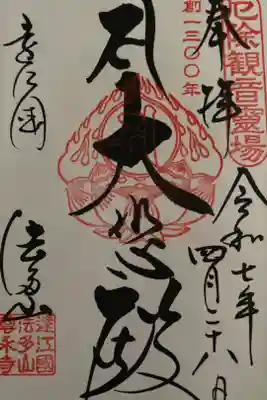 厄除観音靈場
創一三〇〇年
奉拝
令和七年
四月二十八日
大悲殿
遠江国
法多山
遠江國
法多山
尊永寺